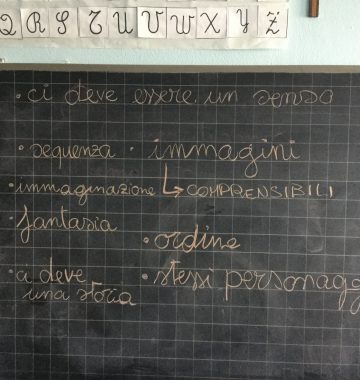 Q R S T U V W X Y Z
• ci deve essere un senso
• sequenza • immagini
• immaginazione ↳ COMPRENSIBILI
• fantasia
• ordine
• ci deve • stessi personagg
una storia